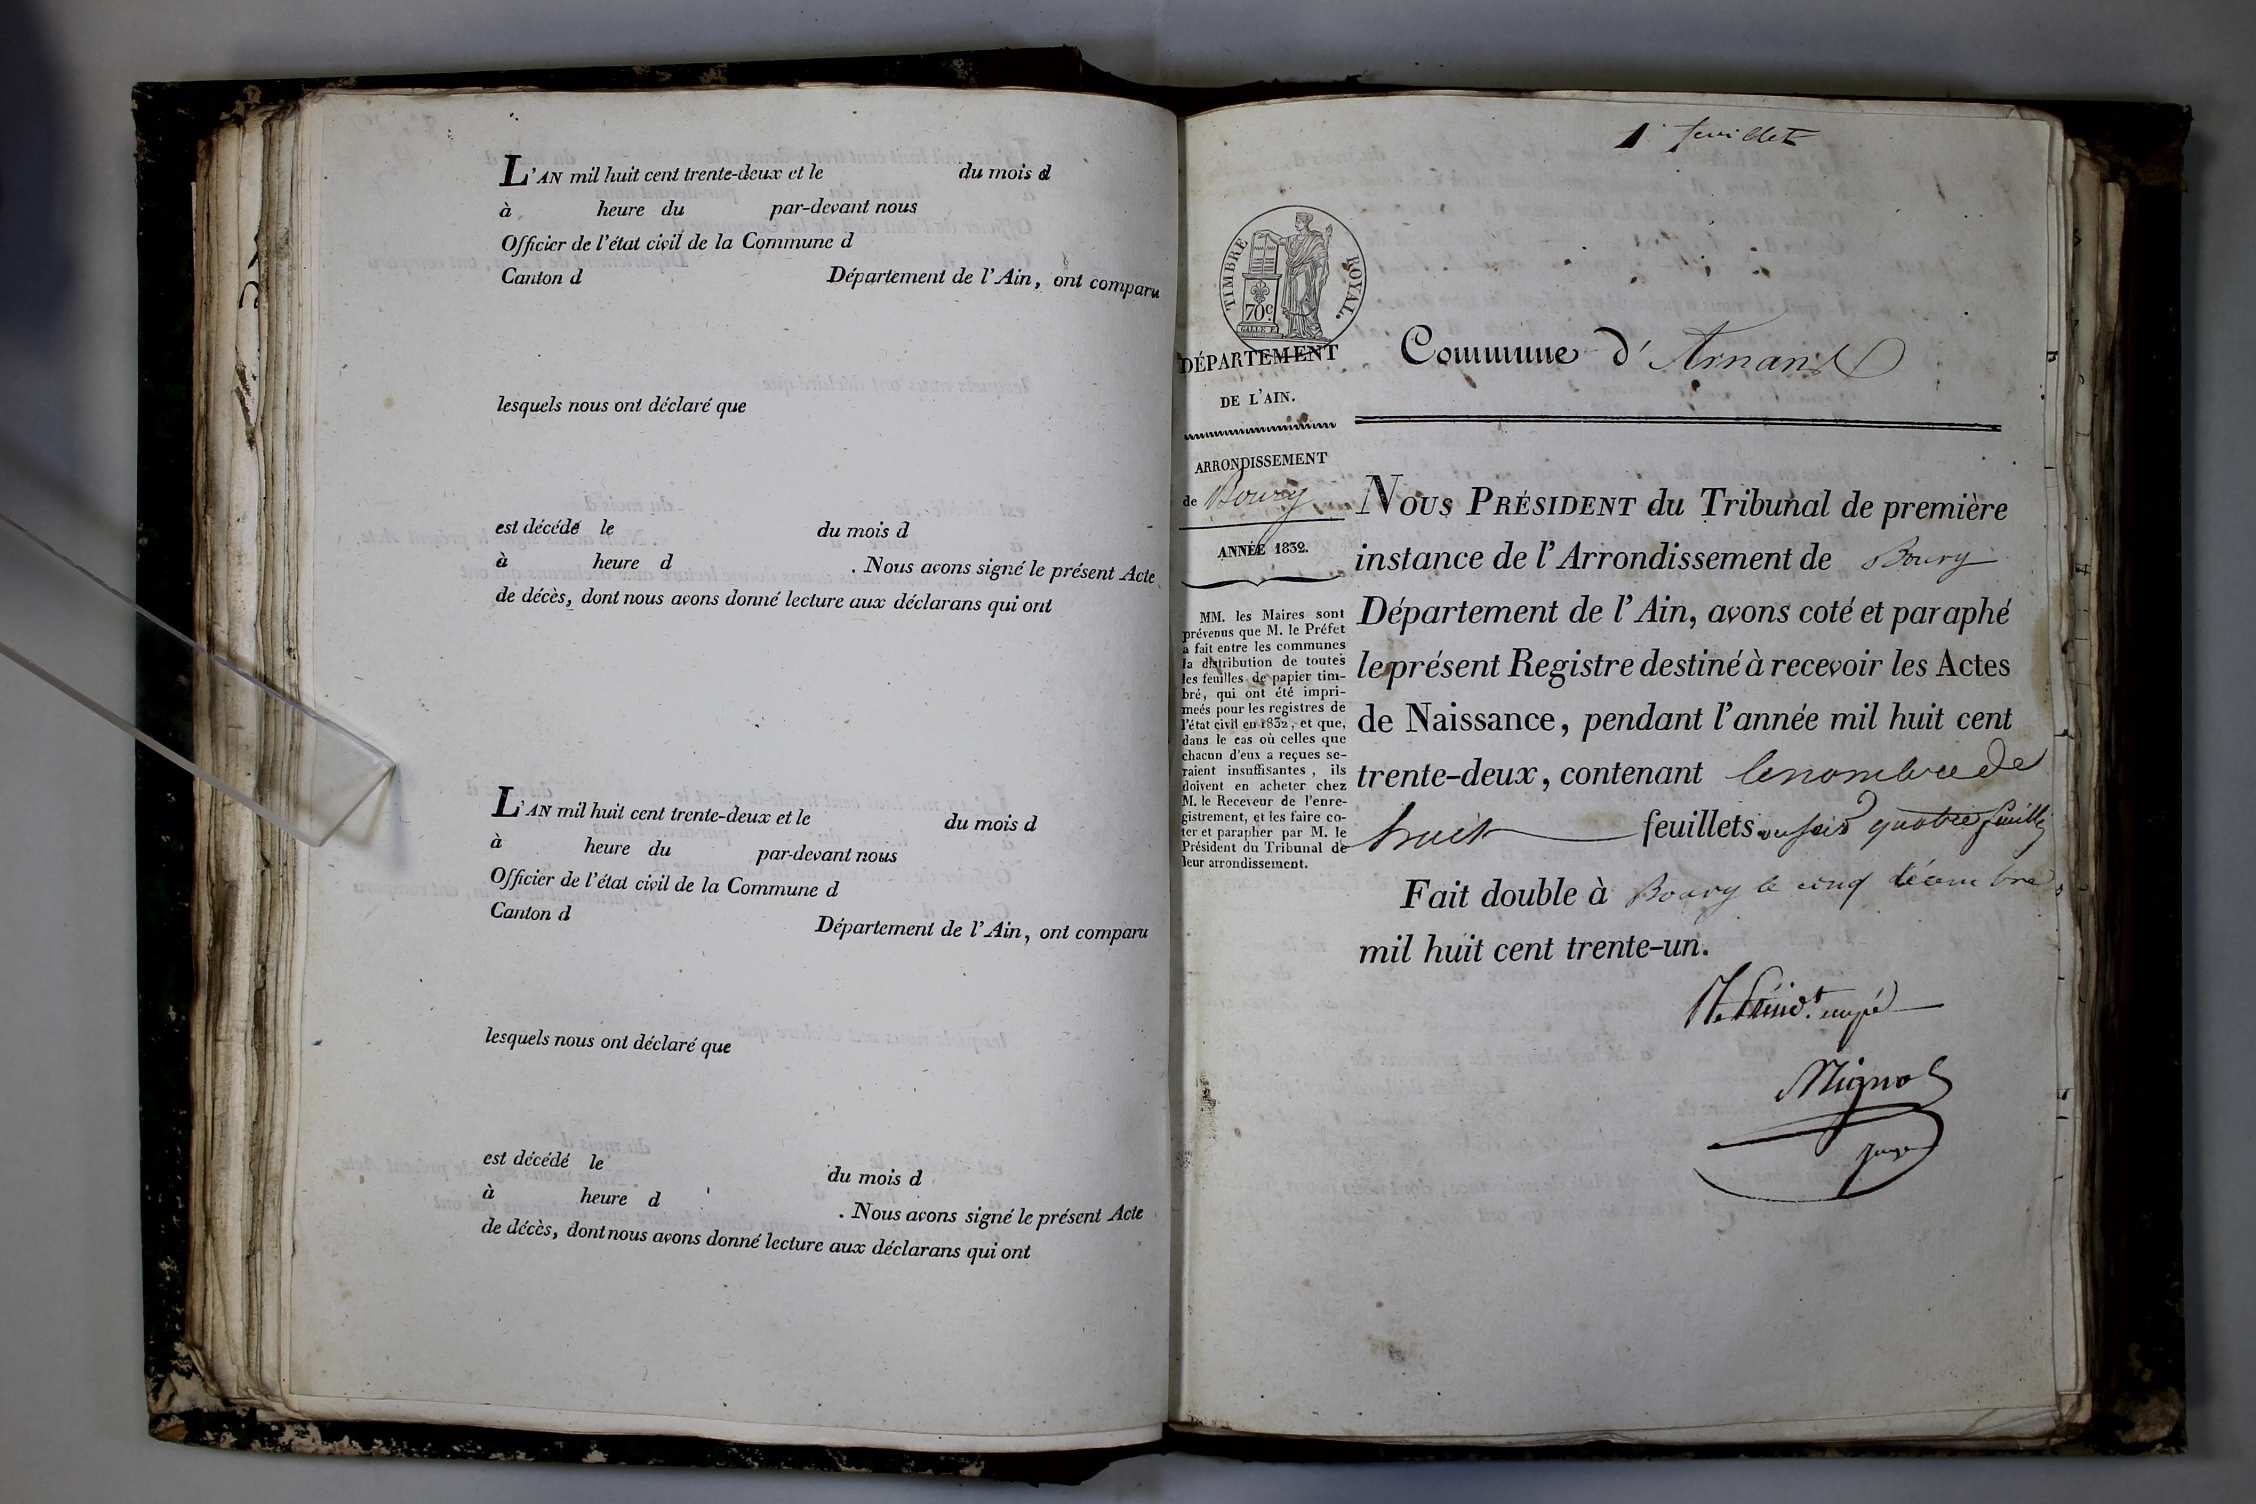 L'AN mil huit cent trente-deux et le du mois d
à heure du par-devant nous
Officier de l'état civil de la Commune d
Canton d Département de l'Ain, ont comparu
lesquels nous ont déclaré que
est décédé le du mois d
à heure d . Nous avons signé le présent Acte
de décès, dont nous avons donné lecture aux déclarans qui ont
L'AN mil huit cent trente-deux et le du mois d
à heure du par-devant nous
Officier de l'état civil de la Commune d
Canton d Département de l'Ain, ont comparu
lesquels nous ont déclaré que
est décédé le du mois d
à heure d . Nous avons signé le présent Acte
de décès, dont nous avons donné lecture aux déclarans qui ont
1 feuillet
TIMBRE ROYAL.
70c.
DÉPARTEMENT
DE L'AIN.
ARRONDISSEMENT
de Bourg
ANNÉE 1832.
MM. les Maires sont
prévenus que M. le Préfet
a fait entre les communes
la distribution de toutes
les feuilles de papier tim-
bré, qui ont été impri-
meés pour les registres de
l'état civil en 1832, et que,
dans le cas où celles que
chacun d'eux a reçues se-
raient insuffisantes, ils
doivent en acheter chez
M. le Receveur de l'enre-
gistrement, et les faire co-
ter et parapher par M. le
Président du Tribunal de
leur arrondissement.
Commune d'Arnans
NOUS PRÉSIDENT du Tribunal de première
instance de l'Arrondissement de Bourg
Département de l'Ain, avons coté et paraphé
le présent Registre destiné à recevoir les Actes
de Naissance, pendant l'année mil huit cent
trente-deux, contenant le nombre de
huit feuillets quatre feuilles
Fait double à Bourg le cinq décembre
mil huit cent trente-un.
Le Présid.t empé
Mignot
Juge